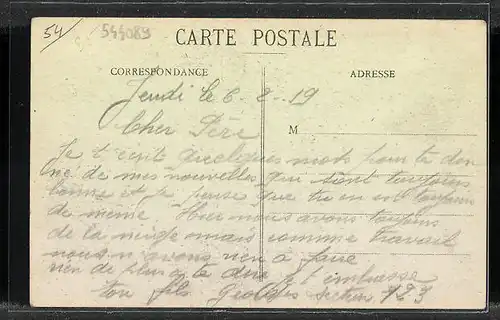 54
544089
CARTE POSTALE
CORRESPONDANCE
ADRESSE
Jeudi le 6-2-19
Cher Père
M
Je t ecrit quelques mots pour te don
ne de mes nouvelles qui sont toujours
bonne et je pense que tu en
de meme Hier nous avons toujours
de la neige mais comme travail
nous n avons rien a faire
rien de plus a te dire je t embrasse
ton fils Georges secteur 123